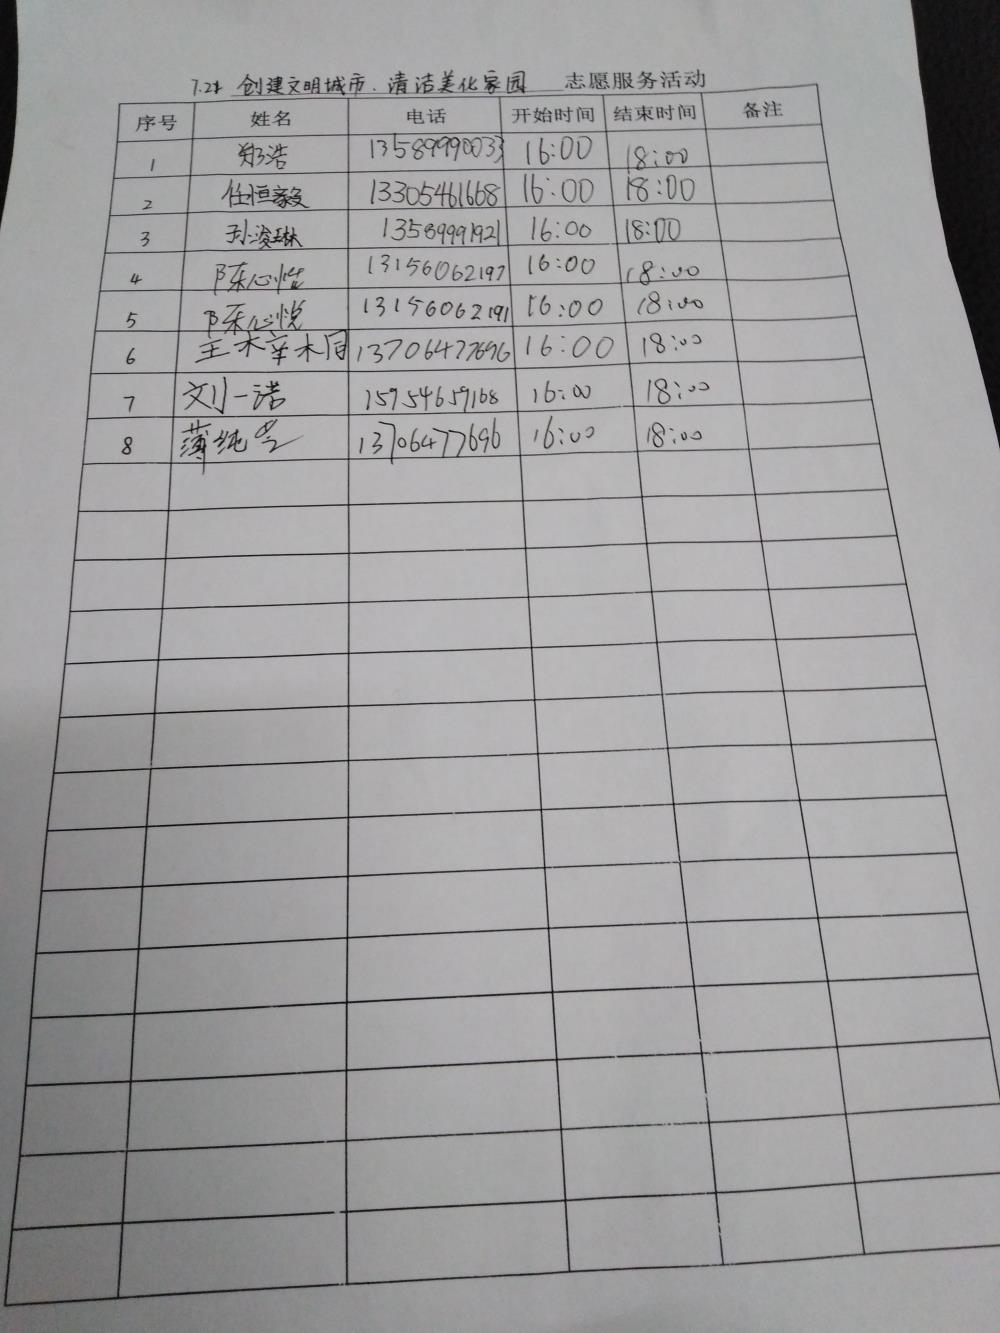 7.21 创建文明城市.清洁美化家园 志愿服务活动
序号 姓名 电话 开始时间 结束时间 备注
1 郑浩 13589990033 16:00 18:00
2 任恒毅 13305461668 16:00 18:00
3 孙浚琳 13589991921 16:00 18:00
4 陈心怡 13156062197 16:00 18:00
5 陈心悦 13156062191 16:00 18:00
6 王木辛木同 13706477696 16:00 18:00
7 刘一诺 15954659168 16:00 18:00
8 薄纯 13706477696 16:00 18:00